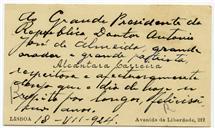 Ao Grande Presidente da
República, Doutor António
José de Almeida, grande
orador e grande
Alcantara Carreira
respeitosa e afectuosamente
deseja que o dia de hoje se
repita por longos, felicissi-
mos anos.
18-VII-924.
LISBOA
Avenida da Liberdade, 212